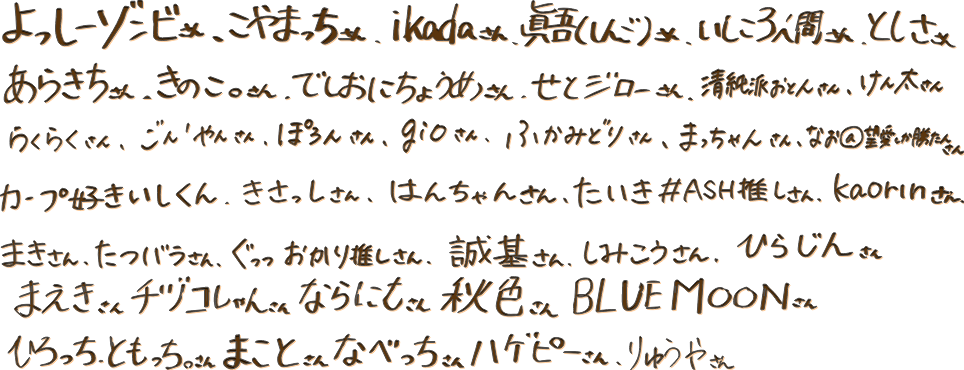 よっしーゾンビさん、こやまっちさん、ikadaさん、眞吾(しんご)さん、いしころ人間さん、としささん
あらきちさん、きのこ。さん、でしおにちょうめさん、せとジローさん、清純派おとんさん、けん太さん
らくらくさん、ごん'やんさん、ぽろんさん、gioさん、ふかみどりさん、まっちゃんさん、なお@望愛しか勝たんさん
カープ好きいしくん、きさっしさん、はんちゃんさん、たいき#ASH推しさん、kaorinさん、
まきさん、たつバラさん、ぐっっおかり推しさん、誠基さん、しみこうさん、ひらじんさん
まえきさん チヅコしゃんさん ならにもさん 秋色さん BLUE MOONさん
ひろっち、ともっち。さん まことさん なべっちさん ハゲピーさん、りゅうやさん